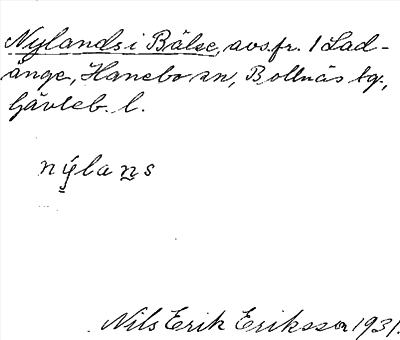 Nylands i Bälse, avs.fr. 1 Lad-
ånge, Hanebo sn, Bollnäs tg.,
Gävleb. l.
nýlans
Nils Erik Eriksson 1931.